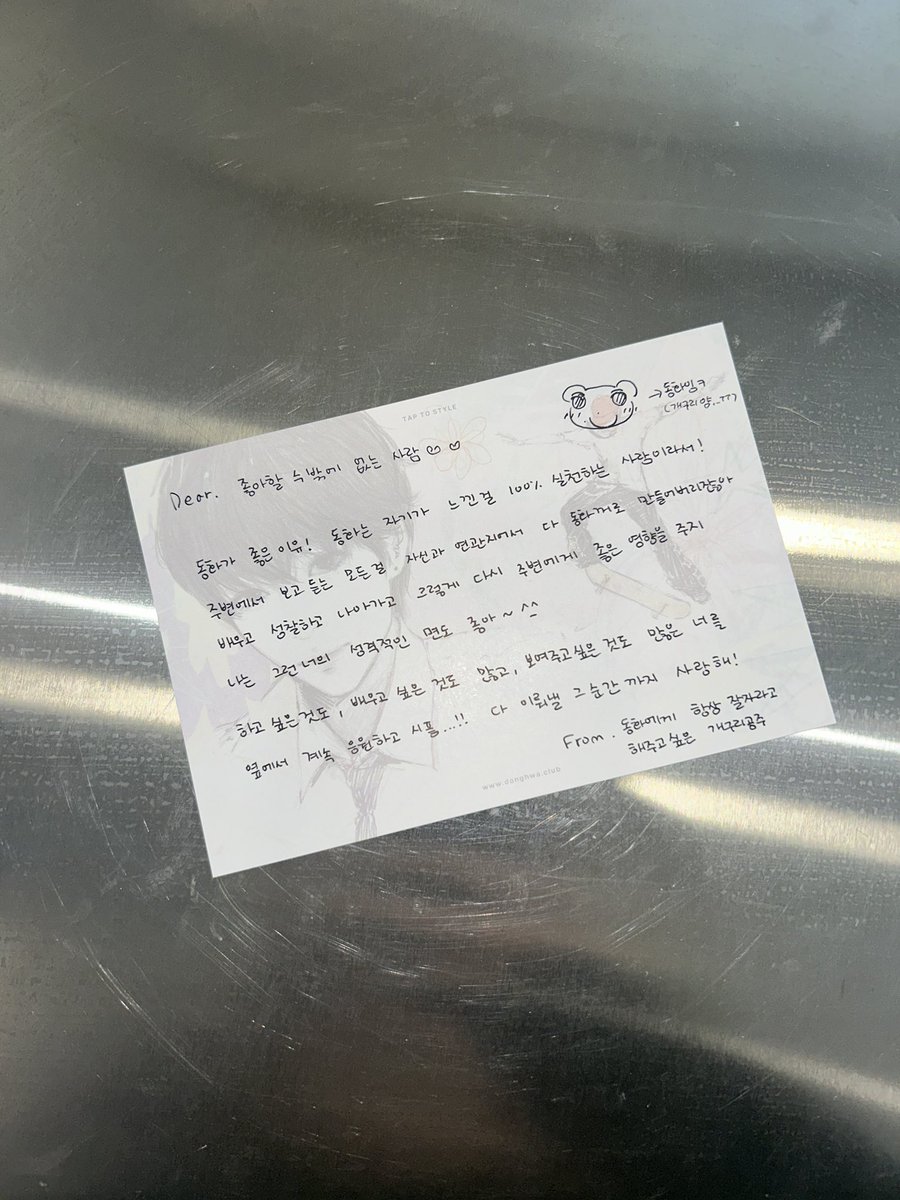 TAP TO STYLE
→동하임ㅋ
(개구리양..ㅠㅠ)
Dear. 좋아할 수밖에 없는 사람♡♡
동화가 좋은 이유! 동하는 자기가 느낀걸 100% 실천하는 사람이라서!
주변에서 보고 듣는 모든걸 자신과 연관지어서 다 동하꺼로 만들어버리잖아
배우고 성찰하고 나아가고 그렇게 다시 주변에게 좋은 영향을 주지
나는 그런 너의 성격적인 면도 좋아~^^
하고 싶은것도, 배우고 싶은 것도 많고, 보여주고싶은 것도 많은 너를
옆에서 계속 응원하고 시플...!! 다 이뤄낼 그순간까지 사랑해!
From. 동하에게 항상 잘자라고
해주고 싶은 개구리공주
www.donghwa.club